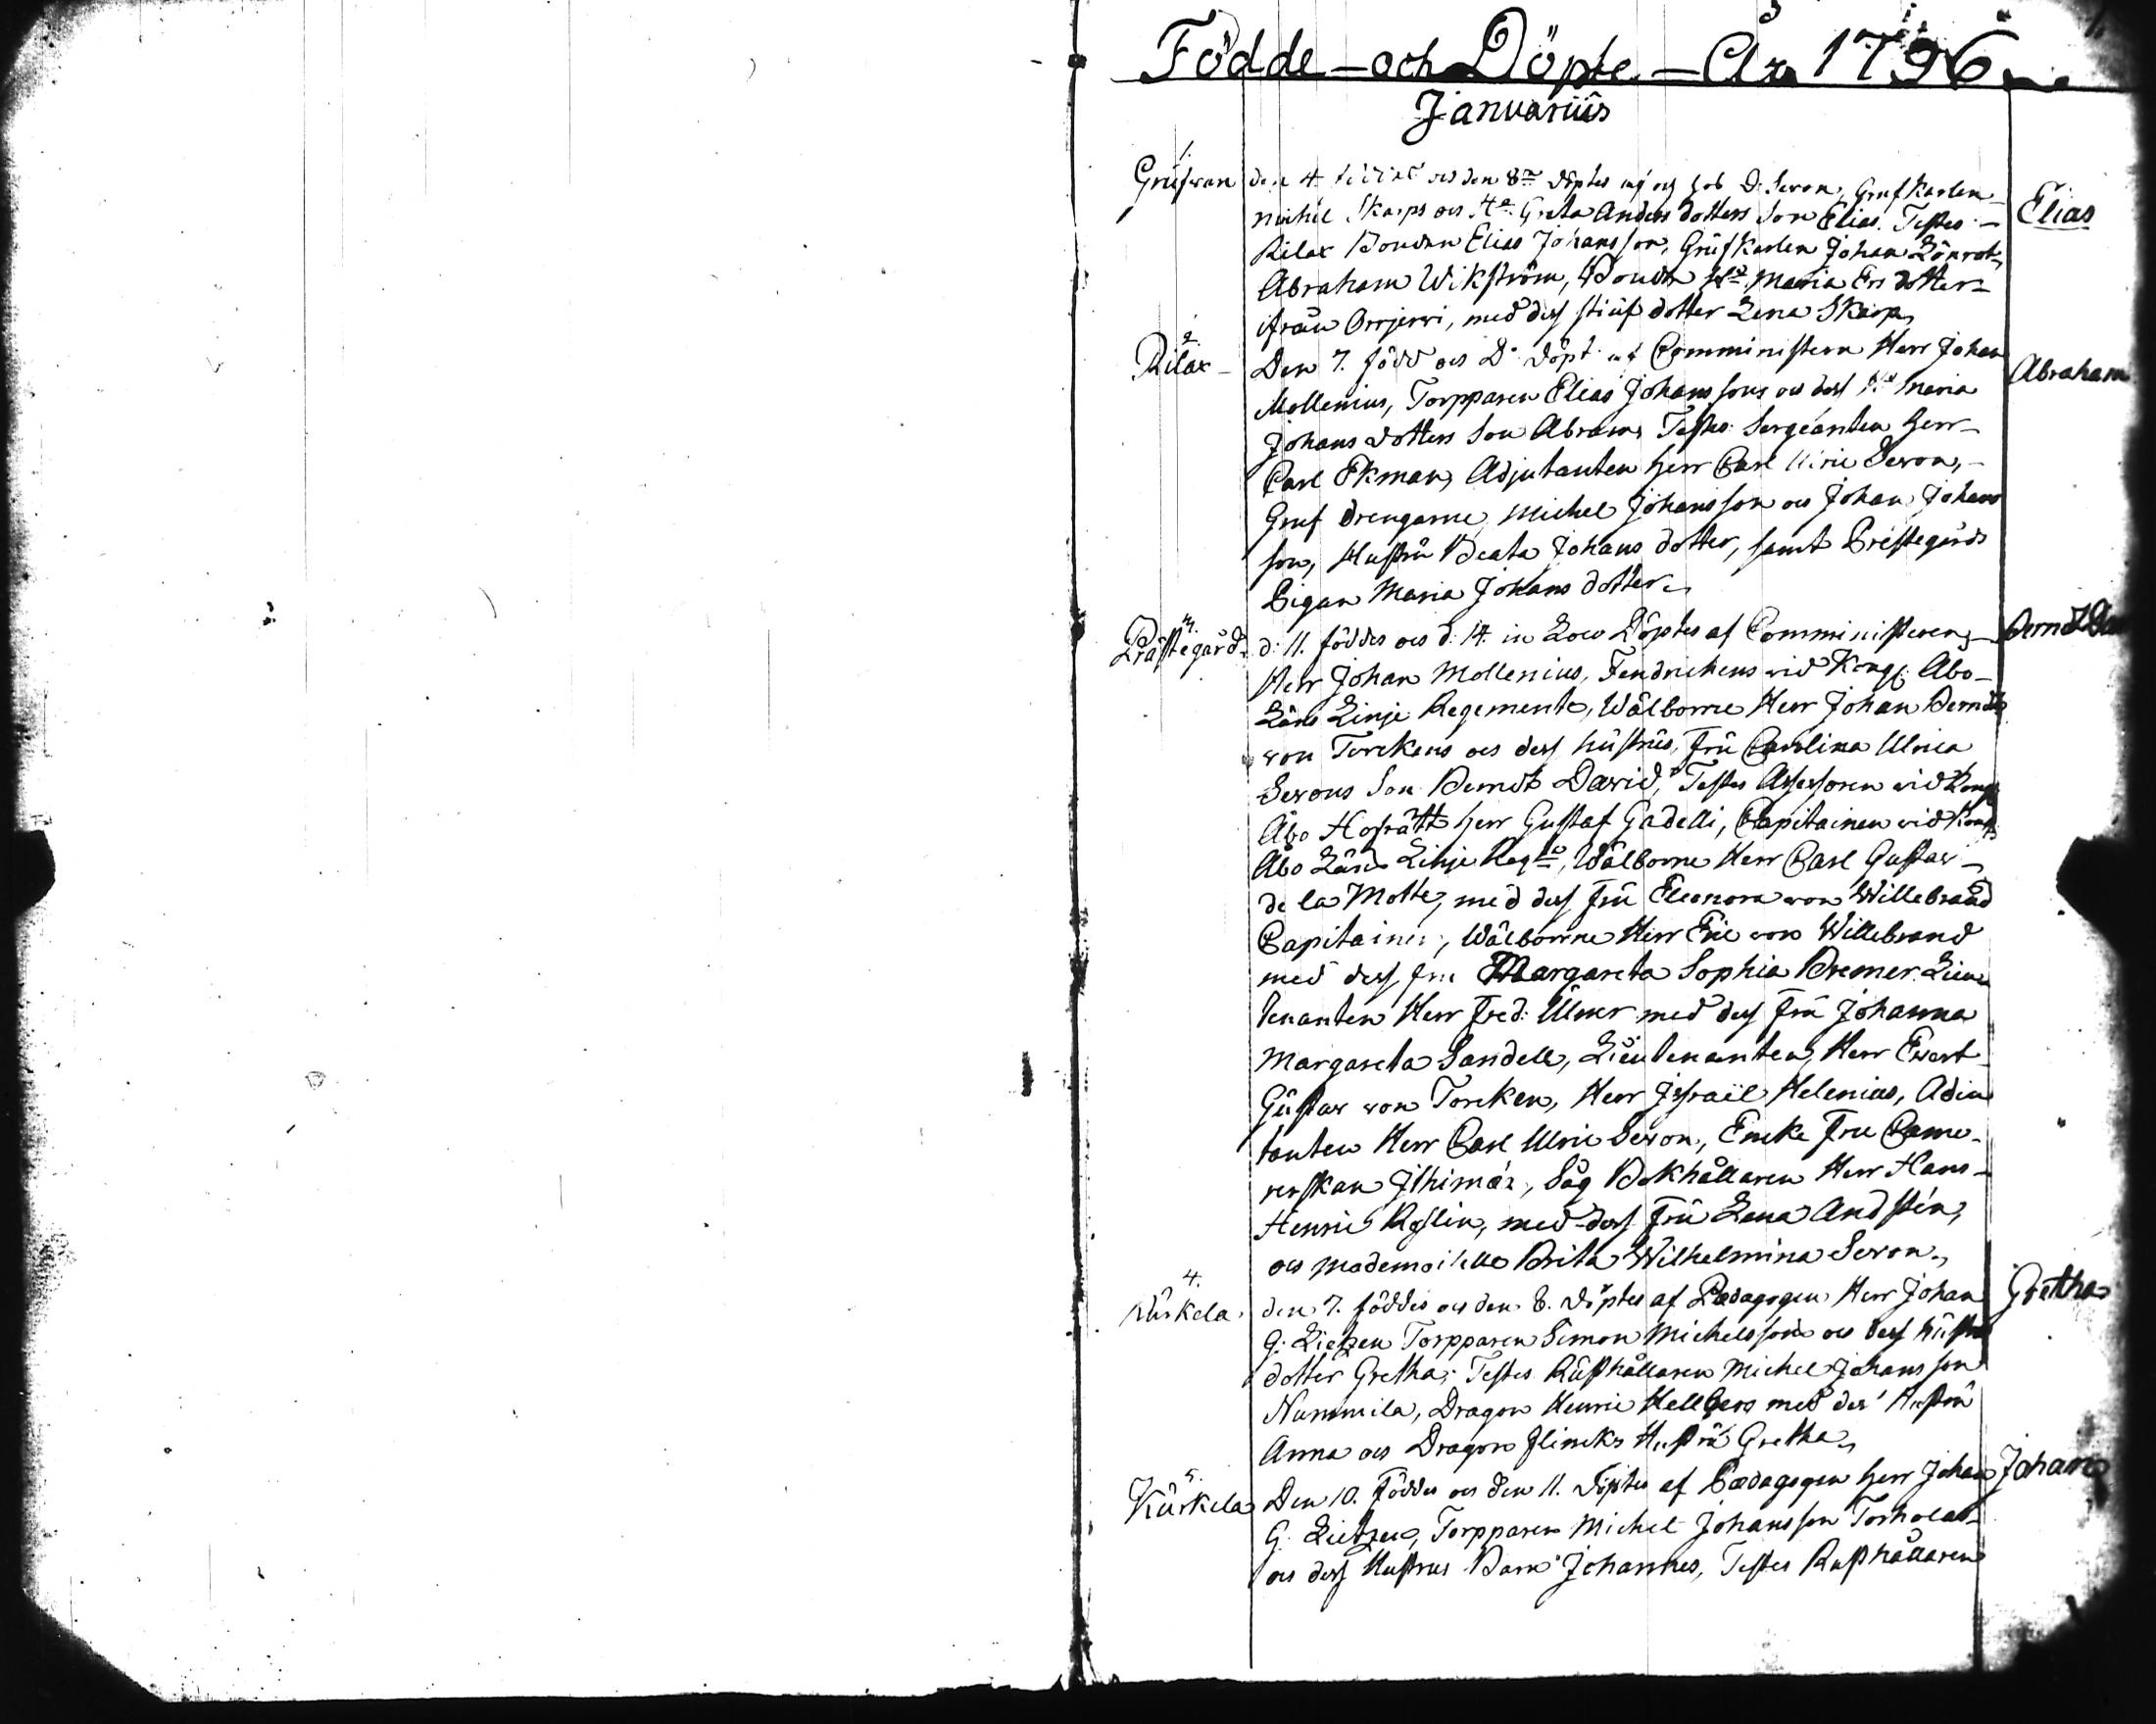 Födde – och Döpte – År 1796
Januarius
1.
Grufvan den 4 och den 8de Döptes af D. Seron, Grufkarlen Elias
Michel Skarps och Hu Greta Anders dotters Son Elias. Testes
Rilax Bonden Elias Johansson, Grufkarlen Johan Lönrot,
Abraham Wikström, Maria Ers dotter
ifrån Orrjerwi, med dess stiufdotter Lena Skarp
2.
Rilax Den 7. född och D. döpt af Comministern Herr Johan Abraham
Mollenius, Torpparen Elias Johanssons och dess Maria
Johans dotters Son Abram, Testes Sergeanten Herr
Carl Ekman, Adjutanten Herr Carl Ulric Seron,
Gruf drengarne Michel Johansson och Johan Johans
son, Hustru Beata Johans dotter, samt Prestegårds
Pigan Maria Johans dotter
3.
Prästegård d. 11. föddes och d. 14. in Loco Döptes af Comministeren Bernd
Herr Johan Mollenius, Fendrickens vid Kongl. Åbo
Läns Linje Regemente, Wälborne Herr Johan Berndt
von Torckens och dess hustrus, Fru Carolina Ulrica
Serons Son Berndt David, Testes Assessoren vid Kongl.
Åbo Hofrätt Herr Gustaf Gadelli, Capitainen vid Kongl.
Åbo Läns Linje Regte, Wälborne Herr Carl Gustav
de la Motte, med dess Fru Eleonora von Willebrand
Capitainen, Wälborne Herr Eric von Willebrand
med dess fru Margareta Sophia Bremer. Lieu
tenanten Herr Fred: Ulner med dess Fru Johanna
Margareta Sandell, Lieutenanten Herr Evert
Gustav von Torcken, Herr Jsraël Helenius, Adju
tanten Herr Carl Ulric Seron, Encke Fru Came-
rerskan Jlhimær, Såg Bokhållaren Herr Hans
Henric Roslin, med dess Fru Lena Andstén,
och Mademoiselle Brita Wilhelmina Seron.
4.
Kurkela den 7. föddes och den 8. Döptes af Pædagogen Herr Johan Gretha
G: Lietzen Torpparen Simon Michelssons och dess hustrus
dotter Gretha; Testes Rusthållaren Michel Johansson
Nummila, Dragon Henric Hellbers med dess Hustru
Anna och Dragon Flincks Hustru Gretha
5.
Kurkela Den 10. Föddes och den 11. Döptes af Pædagogen Herr Johan Johan
G: Lietzen, Torpparen Michel Johansson Torholas
och dess Hustrus Barn Johannes, Testes Rusthållaren